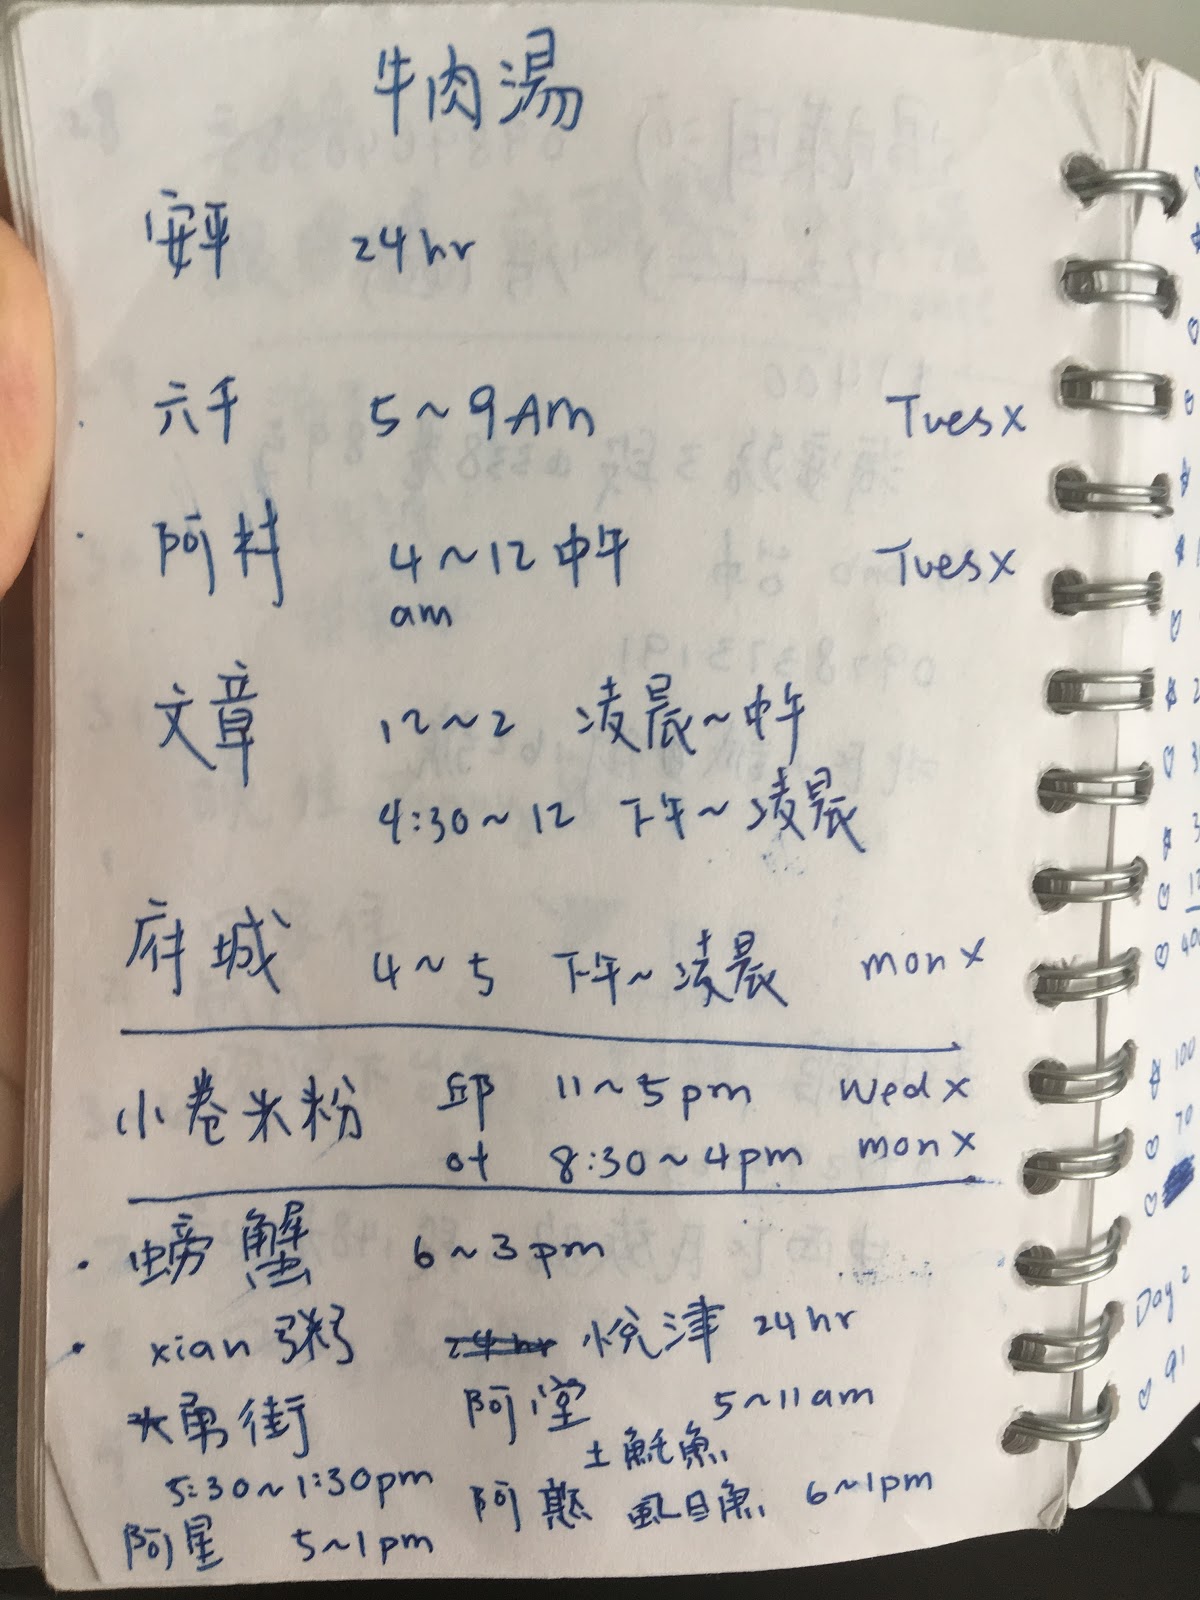 牛肉湯
安平 24hr
六千 5~9AM Tues x
阿村 4~12中午 Tues x
am
文章 12~2 凌晨~中午
4:30~12 下午~凌晨
府城 4~5 下午~凌晨 mon x
小卷米粉 邱 11~5pm Wed x
8:30~4pm mon x
螃蟹 6~3pm
xian 粥 24hr 悅津 24hr
大勇街 阿堂 5~11am
土魠魚
5:30~1:30pm 阿憨 虱目魚 6~1pm
阿星 5~1pm
100
70
Day 2
91